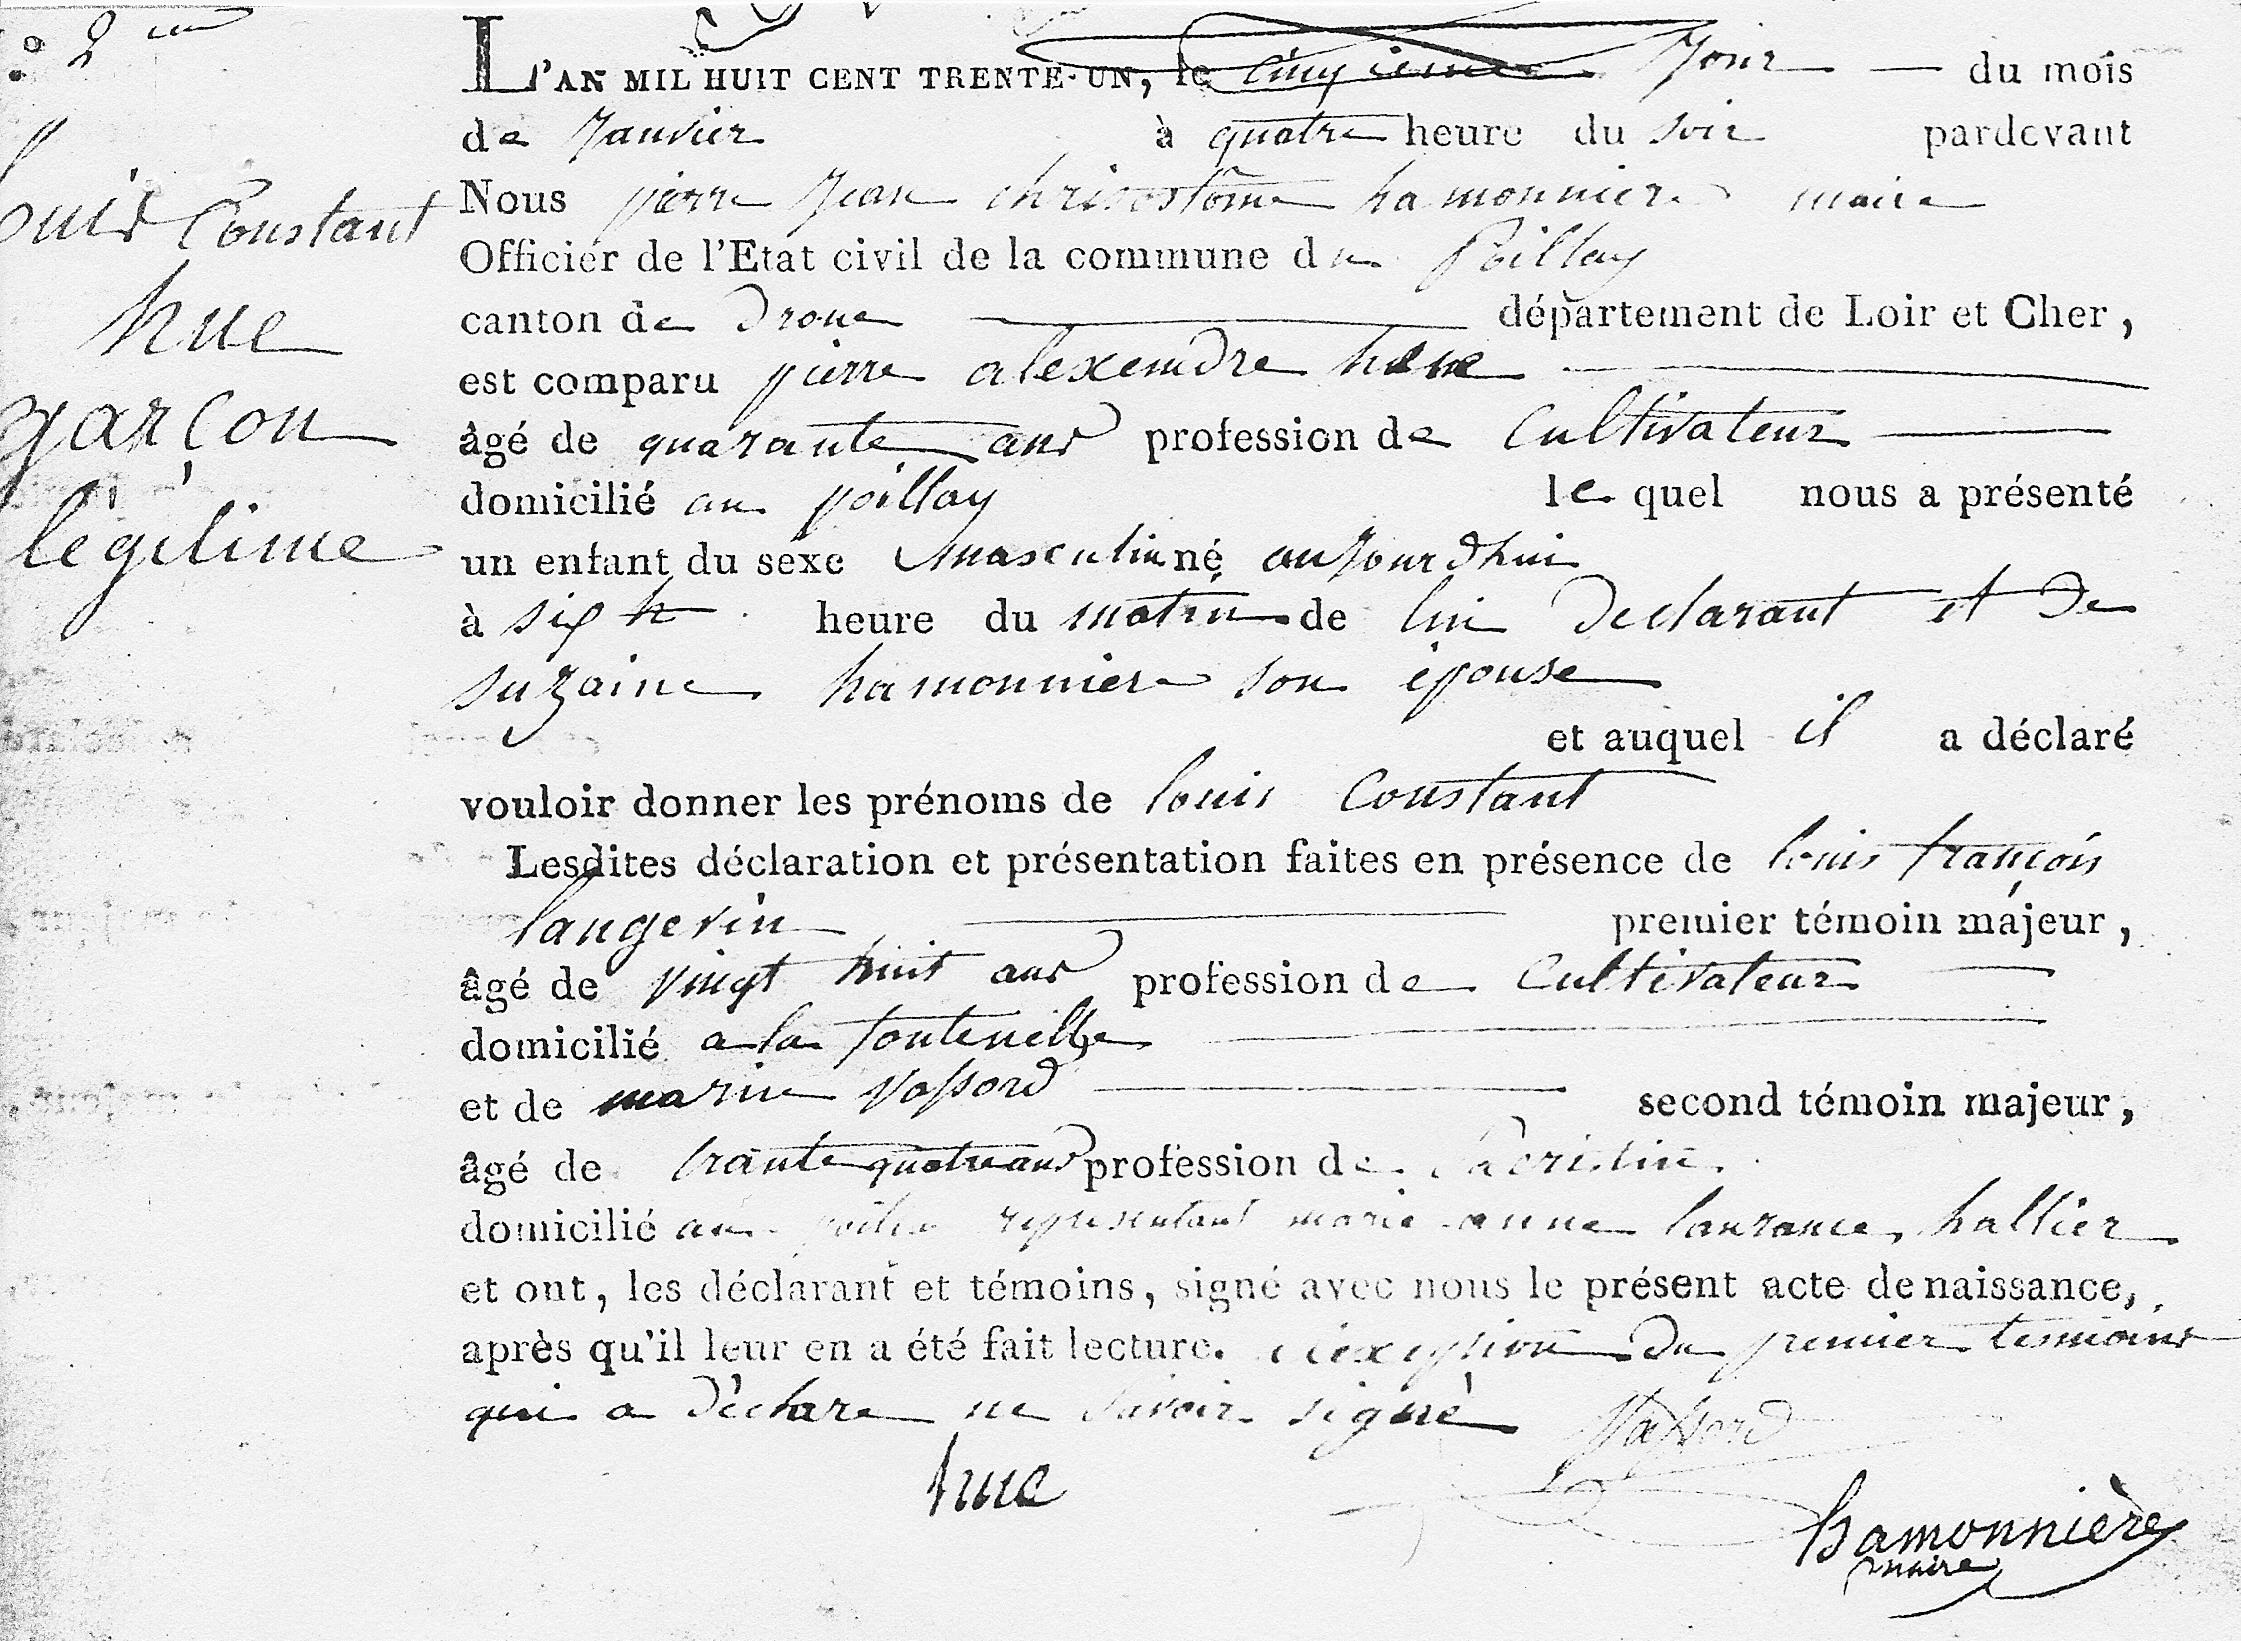 2me
louis Constant
hue
garçon
légitime
L'AN MIL HUIT CENT TRENTE-UN, le cinqieme Jour du mois
de Janvier à quatre heure du soir pardevant
Nous pierre Jean chrisostôme hamonniere maire
Officier de l'Etat civil de la commune du Poillay
canton de droue département de Loir et Cher,
est comparu pierre alexendre hue
âgé de quarante ans profession de Cultivateur
domicilié au poillay le quel nous a présenté
un enfant du sexe masculin né aujourdhui
à six h heure du matin de lui declarant et de
suzaine hamonniere son épouse
et auquel il a déclaré
vouloir donner les prénoms de louis Constant
Lesdites déclaration et présentation faites en présence de louis françois
langevin premier témoin majeur,
âgé de vingt huit ans profession de Cultivateur
domicilié a la fontenelle
et de marin vassord second témoin majeur,
âgé de trante quatre ans profession de sacristin
domicilié au representant marie anne laurance hallier
et ont, les déclarant et témoins, signé avec nous le présent acte de naissance,
après qu'il leur en a été fait lecture. du premier temoins
qui a déclare ne savoir signé Vassord
hue
hamonnière
maire